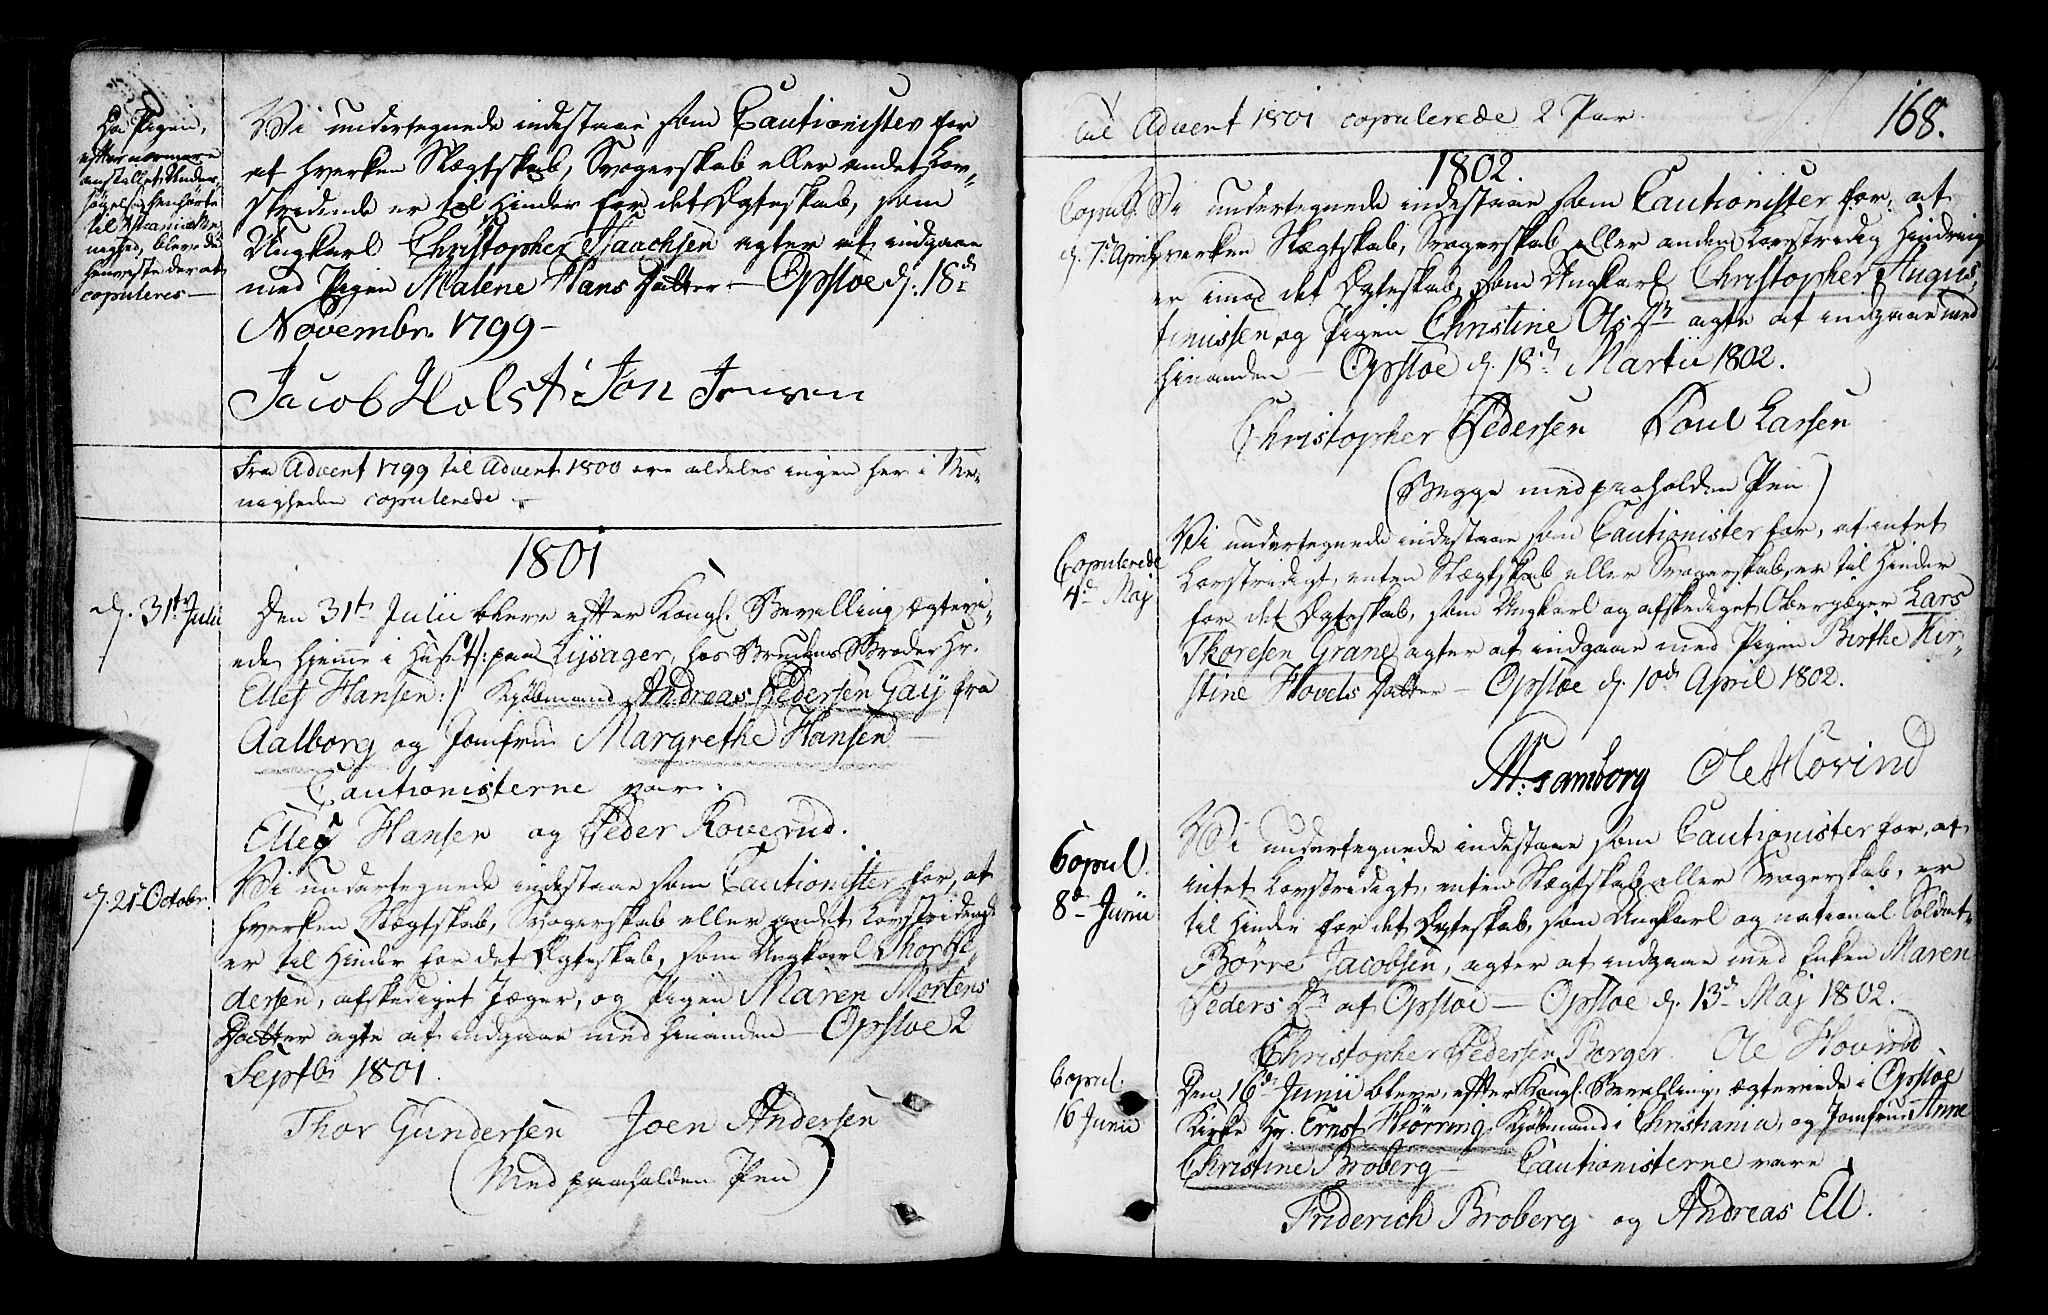 Da Pigen,
efter nærmere
anstillet Under-
søgelse, henhørte
til Menig-
nighed, bleve de
henviste der at
copuleres —
Vi undertegnede indestaae som Cautionister for
at hverken Slægtskab, Svogerskab eller andet Lov-
stridende er til Hinder for det Ægteskab, som
Ungkarl Christopher Isaachsen agter at indgaae
med Pigen Malene Hans Datter — Opsloe d. 18de
Novembr. 1799 —
Jacob Holst Jon Jensen
Fra Advent 1799 til Advent 1800 ere aldeles ingen her i Me-
nigheden copulerede —
1801
d. 31te Julii
Den 31te Julii bleve efter Kongl. Bevilling ægtevi-
ede hjemme i Huset /: paa Lysager, hos Brudens Broder Hr.
Ellef Hansen :/ Kjøbmand Andreas Pedersen Gaij fra
Aalborg og Jomfru Margrethe Hansen —
Cautionisterne vare:
Ellef Hansen og Peder Roverud.
d. 21de Octobr.
Vi undertegnede indestaae som Cautionister for, at
hverken Slægtskab, Svogerskab eller andet Lovstridende
er til Hinder for det Ægteskab, som Ungkarl Thor
dersen, afskediget Jæger, og Pigen Maren Mortens
Datter agte at indgaae med hinanden — Opsloe 2
Septbr 1801.
Thor Gundersen Joen Andersen
(Med paaholden Pen)
til Advent 1801 copulerede 2 Par.
168.
1802.
Copul.
d. 7de April
Vi undertegnede indestaae som Cautionister for, at
hverken Slægtskab, Svogerskab eller anden Lovstridig Hindring
er imod det Ægteskab, som Ungkarl Christopher Augus-
tinussen og Pigen Christine Ols Dr agte at indgaae med
hinanden — Opsloe d. 18de Martii 1802.
Christopher Pedersen Poul Larsen
(Begge med paaholden Pen)
Copulerede
4de Maj
Vi undertegnede indestaae som Cautionister for, at intet
Lovstridigt, enten Slægtskab eller Svogerskab, er til Hinder
for det Ægteskab, som Ungkarl og afskediget Oberjæger Lars
Thoresen Grane agter at indgaae med Pigen Birthe Kir-
stine Hovels Datter — Opsloe d. 10de April 1802.
Ole Hovind
Copul.
8de Junii
Vi undertegnede indestaae som Cautionister for, at
intet Lovstridigt, enten Slægtskab eller Svogerskab, er
til Hinder for det Ægteskab, som Ungkarl og national Soldat
Børre Jacobsen, agter at indgaae med Enken Maren
Peders Dr af Opsloe — Opsloe d. 13de Maj 1802.
Christopher Pedersen Borger. Ole Hovind
Copul.
16 Junii
Den 16de Junii bleve, efter Kongl. Bevilling, ægteviede i Opsloe
Kirke Hr. Ernst Hiørring, Kjøbmand i Christiania, og Jomfrue Anne
Christine Broberg — Cautionisterne vare
Friderich Broberg og Andreas Ell.